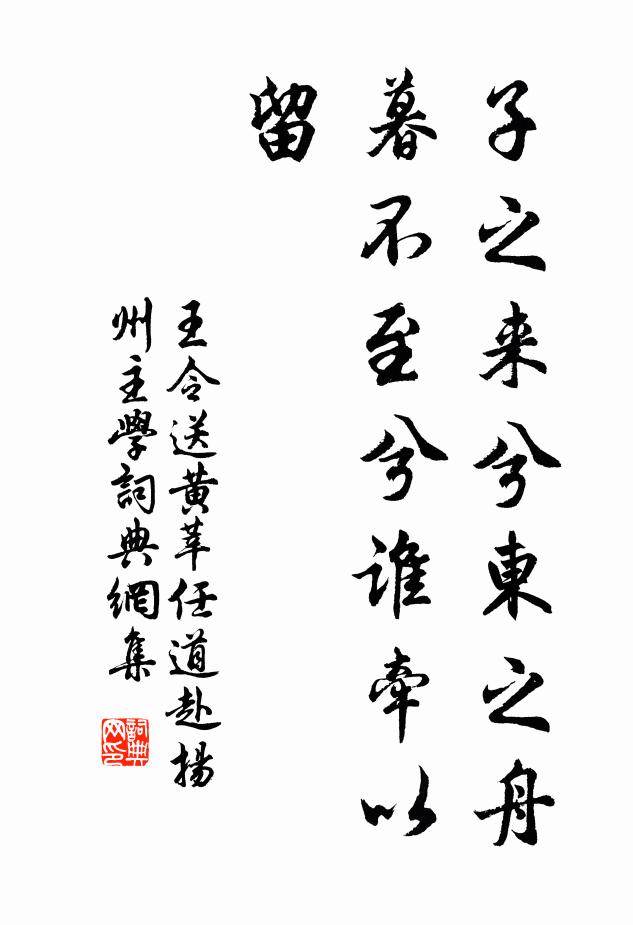 子之来兮東之舟
暮不至兮谁牽以
留
王令送黄莘任道赴揚
州主學詞典網集
詞典网印